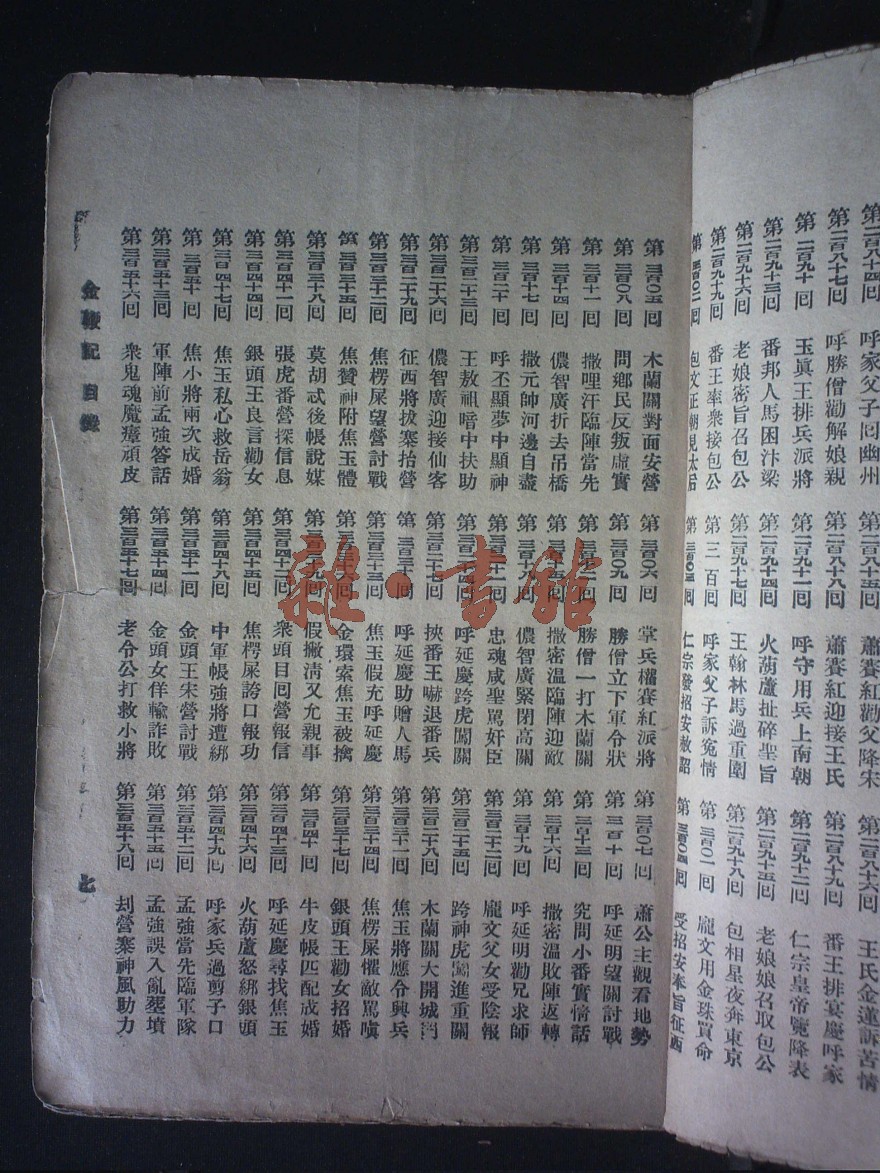 第二百八十四回 呼家父子回幽州 第二百八十五回 蕭賽紅勸父降宋 第二百八十六回 王氏金蓮訴苦情
第二百八十七回 呼勝僧勸解娘親 第二百八十八回 蕭賽紅迎接王氏 第二百八十九回 番王排宴慶呼家
第二百九十回 玉眞王排兵派將 第二百九十一回 呼守用兵上南朝 第二百九十二回 仁宗皇帝覽降表
第二百九十三回 番邦人馬困汴梁 第二百九十四回 火葫蘆扯碎聖旨 第二百九十五回 老娘娘召取包公
第二百九十六回 老娘密旨召包公 第二百九十七回 王翰林馬過重圍 第二百九十八回 包相星夜奔東京
第二百九十九回 番王率衆接包公 第三百回 呼家父子訴冤情 第三百〇一回 龐文用金珠買命
第三百〇二回 包文正朝見太后 第三百〇三回 仁宗發招安赦詔 第三百〇四回 受招安奉旨征西
第三百〇五回 木蘭關對面安營 第三百〇六回 掌兵權賽紅派將 第三百〇七回 蕭公主觀看地勢
第三百〇八回 問鄉民反叛虛實 第三百〇九回 勝僧立下軍令狀 第三百十回 呼延明望關討戰
第三百十一回 撒哩汗臨陣當先 第三百十二回 勝僧一打木蘭關 第三百十三回 究問小番實情話
第三百十四回 儂智廣折去吊橋 第三百十五回 撒密溫臨陣迎敵 第三百十六回 撒密溫敗陣返轉
第三百十七回 撒元帥河邊自盡 第三百十八回 儂智廣緊閉高關 第三百十九回 呼延明勸兄求師
第三百二十回 呼丕顯夢中顯神 第三百二十一回 忠魂咸聖罵奸臣 第三百二十二回 龐文父女受陰報
第三百二十三回 王敖祖暗中扶助 第三百二十四回 呼延慶跨虎闖關 第三百二十五回 跨神虎闖進重關
第三百二十六回 儂智廣迎接仙客 第三百二十七回 挾番王嚇退番兵 第三百二十八回 木蘭關大開城門
第三百二十九回 征西將拔寨抬營 第三百三十回 呼延慶助贈人馬 第三百三十一回 焦玉將應令興兵
第三百三十二回 焦楞屎望營討戰 第三百三十三回 焦玉假充呼延慶 第三百三十四回 焦楞屎懼敵罵嗔
第三百三十五回 焦贊神附焦玉體 第三百三十六回 金環索焦玉被擒 第三百三十七回 銀頭王勸女招婚
第三百三十八回 莫胡忒後帳說媒 第三百三十九回 假撇清又允親事 第三百四十回 牛皮帳匹配成婚
第三百四十一回 張虎番營探信息 第三百四十二回 衆頭目回營報信 第三百四十三回 呼延慶尋找焦玉
第三百四十四回 銀頭王良言勸女 第三百四十五回 焦楞屎誇口報功 第三百四十六回 火葫蘆怒綁銀頭
第三百四十七回 焦玉私心救岳翁 第三百四十八回 中軍帳強將遭綁 第三百四十九回 呼家兵過剪子口
第三百五十回 焦小將兩次成婚 第三百五十一回 金頭王宋營討戰 第三百五十二回 孟強當先臨軍隊
第三百五十三回 軍陣前孟強答話 第三百五十四回 金頭女佯輸詐敗 第三百五十五回 孟強誤入亂塟墳
第三百五十六回 衆鬼魂魔瘴頑皮 第三百五十七回 老令公打救小將 第三百五十八回 刦營寨神風助力
金鞭記 目錄 七
雜·書館